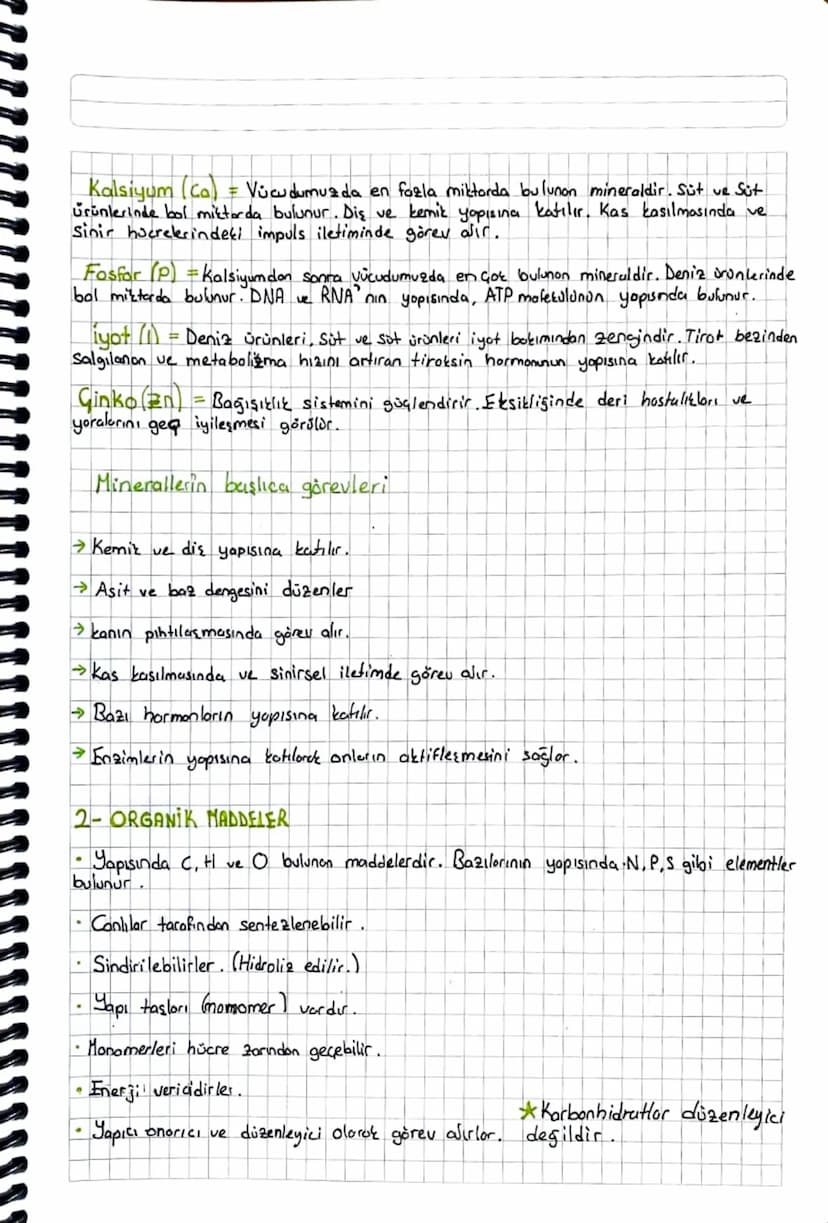 Kalsiyum (Ca) = Vücudumuzda en fazla miktarda bulunan mineraldir. Süt ve Süt
ürünlerinde bol miktarda bulunur. Diş ve kemik yapısına katılır. Kas kasılmasında ve
sinir hücrelerindeki impuls iletiminde görev alır.
Fosfor (P) = Kalsiyumdan sonra vücudumuzda en çok bulunan mineraldir. Deniz ürünlerinde
bol miktarda bulunur. DNA ve RNA'nın yapısında, ATP molekülünün yapısında bulunur.
İyot (I) = Deniz ürünleri, Süt ve süt ürünleri iyot bakımından zengindir. Tirot bezinden
Salgılanan ve metabolizma hızını artıran tiroksin hormonunun yapısına katılır.
Çinko (Zn) = Bağışıklık sistemini güçlendirir. Eksikliğinde deri hastalıkları ve
yaralarını geç iyileşmesi görülür.
Minerallerin başlıca görevleri
→ Kemik ve diş yapısına katılır.
→ Asit ve baz dengesini düzenler
→ kanın pıhtılaşmasında görev alır.
→ Kas kasılmasında ve sinirsel iletimde görev alır.
→ Bazı hormonların yapısına katılır.
→ Enzimlerin yapısına katılarak onların aktifleşmesini sağlar.
2- ORGANİK MADDELER
• Yapısında C, H ve O bulunan maddelerdir. Bazılarının yapısında N, P, S gibi elementler
bulunur.
• Canlılar tarafından sentezlenebilir.
• Sindirilebilirler. (Hidroliz edilir.)
• Yapı taşları (momomer) vardır.
• Monomerleri hücre zarından geçebilir.
• Enerji vericidirler.
• Yapıcı onarıcı ve düzenleyici olarak görev alırlar.
★ Karbonhidratlar düzenleyici
değildir.